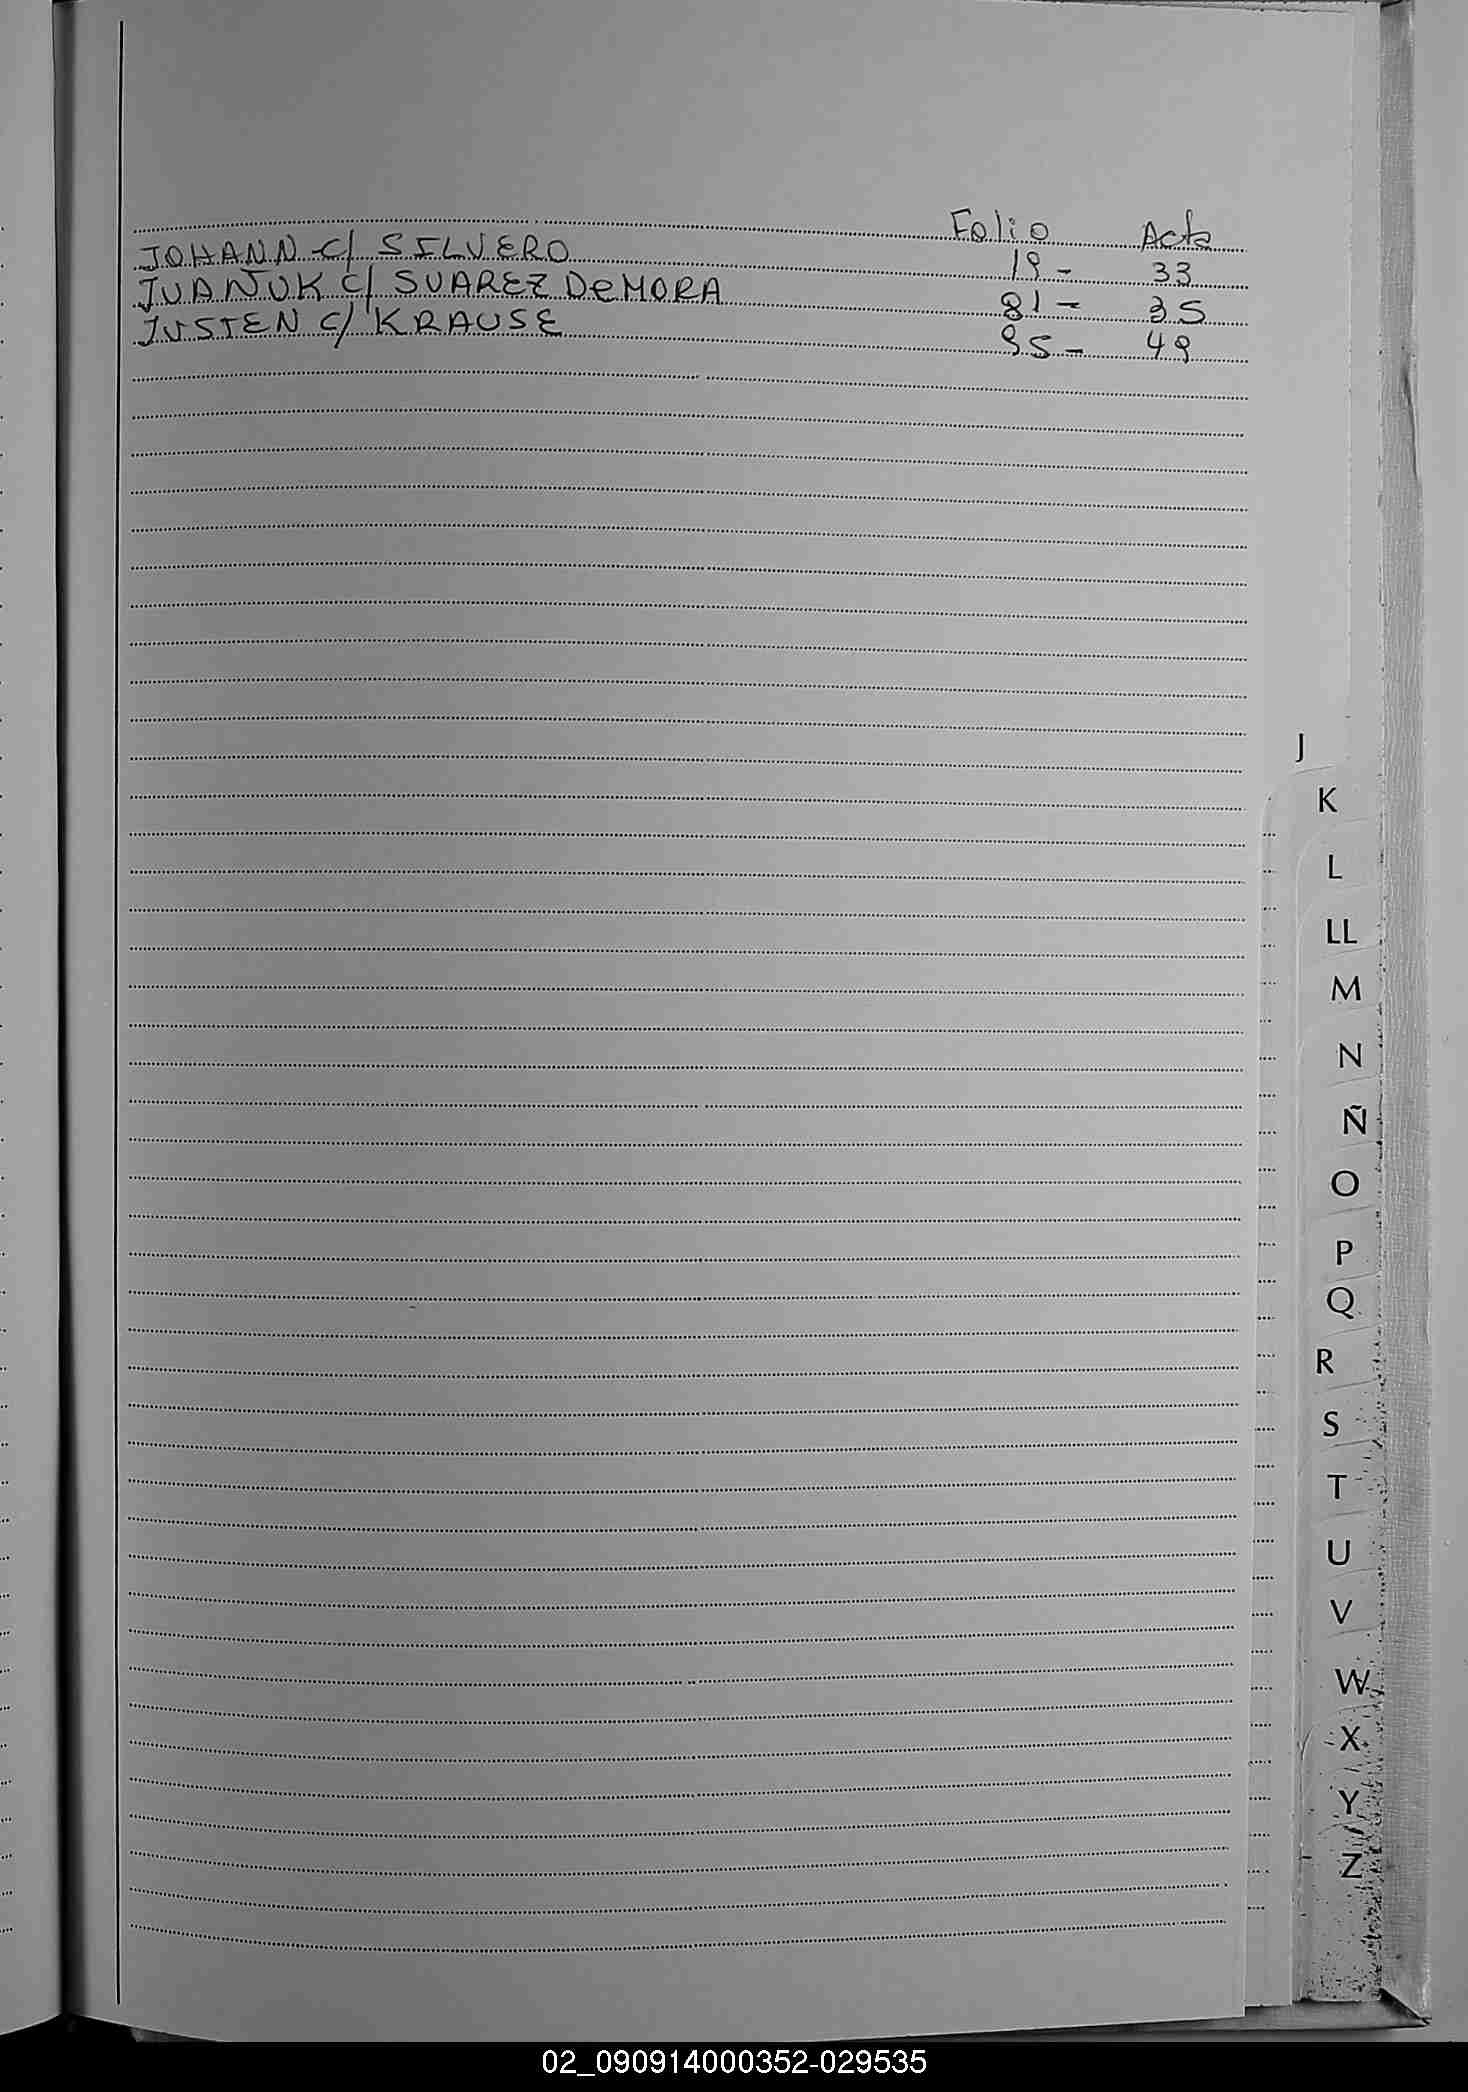 Folio Acta
JOHANN c/ SILVERO 19 - 33
JUANJUK c/ SUAREZ DeMORA 81 - 35
JUSTEN c/ KRAUSE 95 - 49
J
K
L
LL
M
N
Ñ
O
P
Q
R
S
T
U
V
W
X
Y
Z
02_090914000352-029535